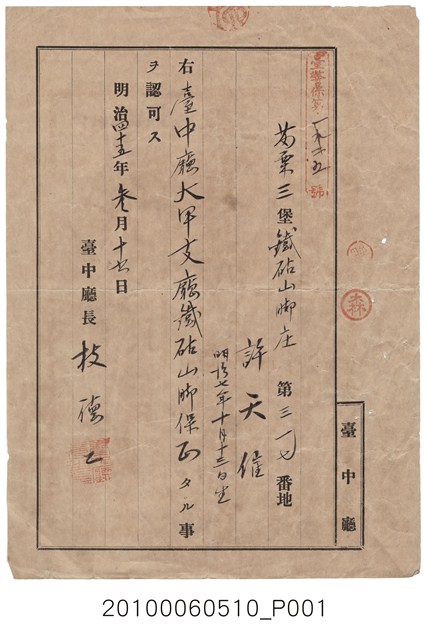 臺警保第一九六五號
苗栗三堡鐵砧山脚庄第三一七番地
許天催
明治七年十月十三日生
右臺中廳大甲支廳鐵砧山脚保正タル事
ヲ認可ス
明治四十五年參月十七日
臺中廳長枝德二
臺中廳
森
20100060510_P001